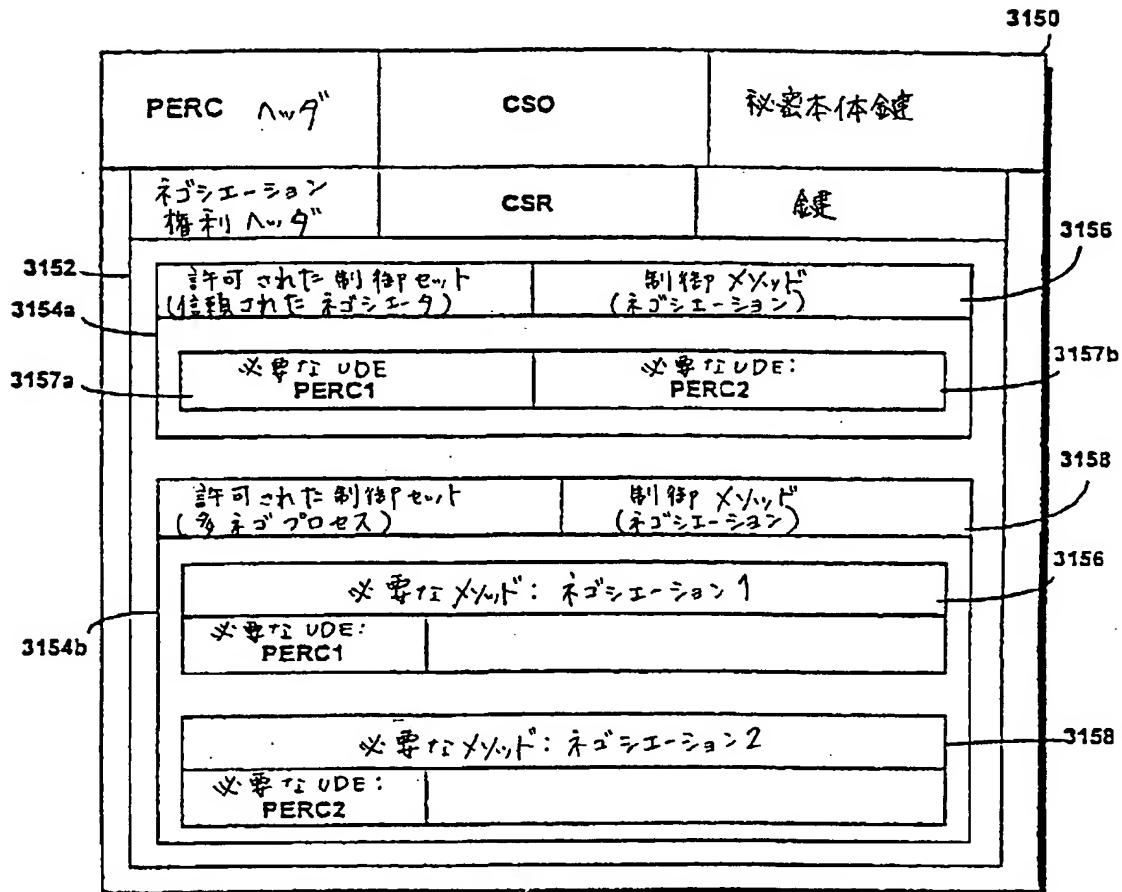 3150
PERC ヘッダ
CSO
秘密本体鍵
ネゴシエーション
権利 ヘッダ
CSR
鍵
3156
3152
許可された制御セット
(信頼されたネゴシエータ)
制御メソッド
(ネゴシエーション)
3154a
3157a
必要な UDE
PERC1
必要な UDE:
PERC2
3157b
許可された制御セット
(多ネゴプロセス)
制御メソッド
(ネゴシエーション)
3158
必要なメソッド: ネゴシエーション1
3156
3154b
必要な UDE:
PERC1
必要なメソッド: ネゴシエーション2
3158
必要な UDE:
PERC2